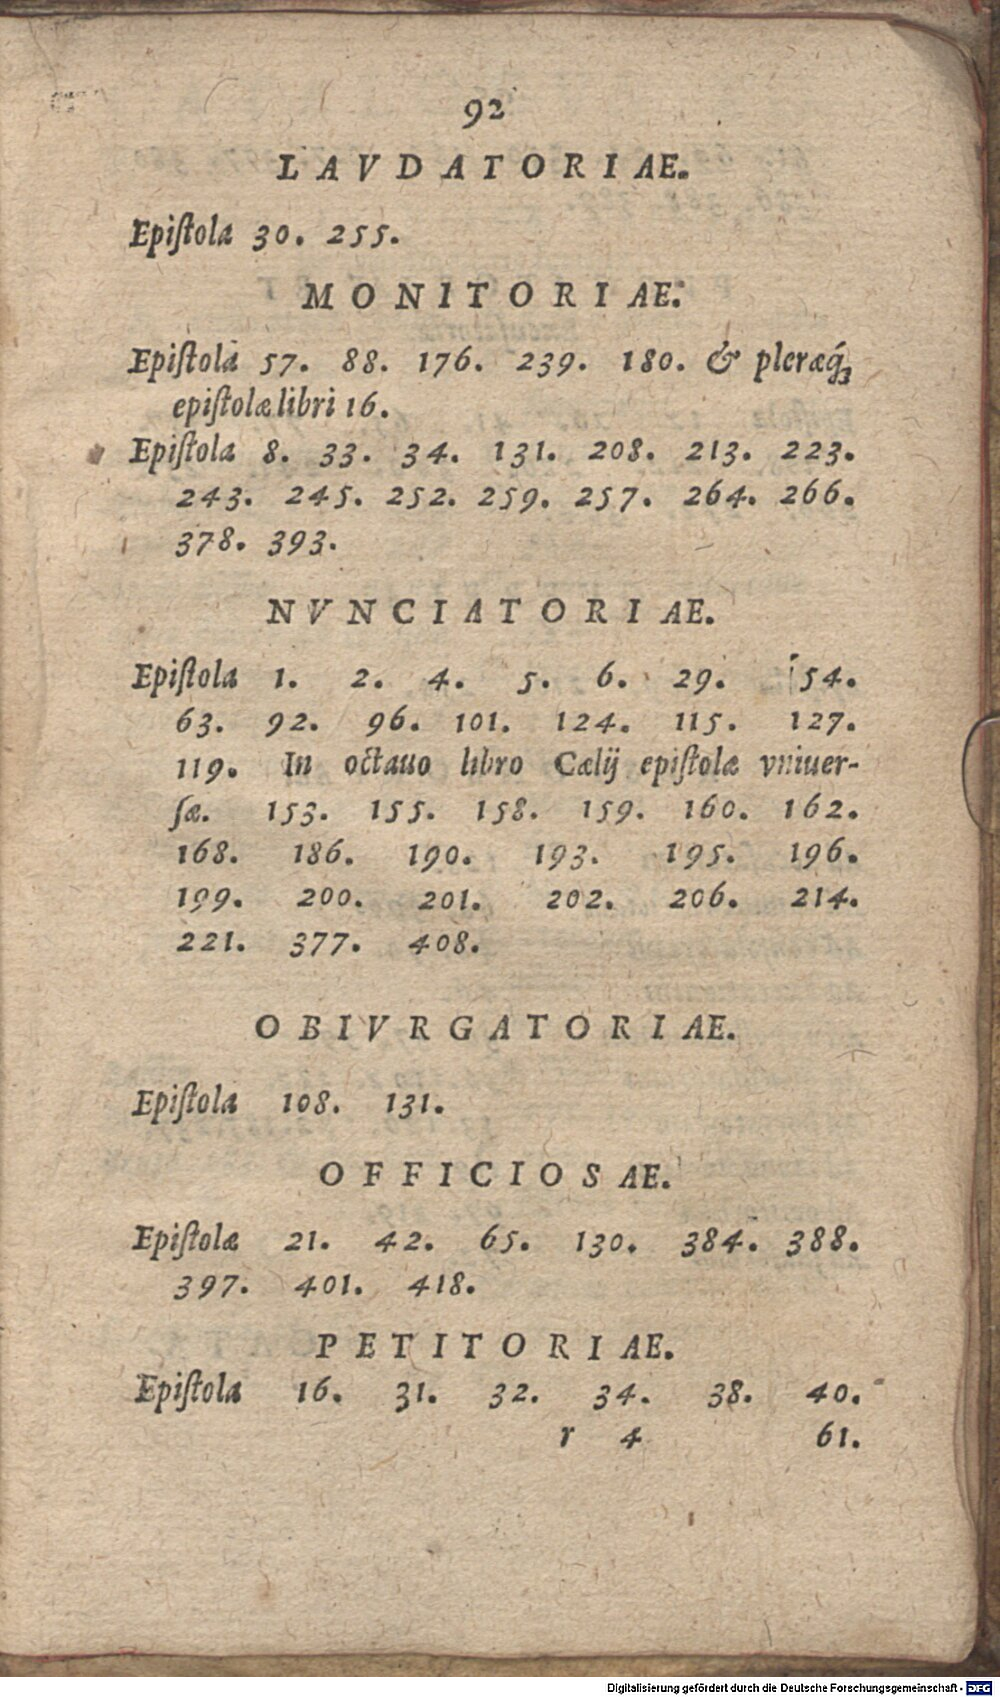 92
LAVDATORIAE.
Epiſtola 30. 255.
MONITORIAE.
Epiſtola 57. 88. 176. 239. 180. & pleræq́ꝫ
epiſtolæ libri 16.
Epiſtola 8. 33. 34. 131. 208. 213. 223.
243. 245. 252. 259. 257. 264. 266.
378. 393.
NVNCIATORIAE.
Epiſtola 1. 2. 4. 5. 6. 29. 54.
63. 92. 96. 101. 124. 115. 127.
119. In octauo libro Cælij epiſtolæ vniuer-
ſæ. 153. 155. 158. 159. 160. 162.
168. 186. 190. 193. 195. 196.
199. 200. 201. 202. 206. 214.
221. 377. 408.
OBIVRGATORIAE.
Epiſtola 108. 131.
OFFICIOSAE.
Epiſtolæ 21. 42. 65. 130. 384. 388.
397. 401. 418.
PETITORIAE.
Epiſtola 16. 31. 32. 34. 38. 40.
r 4 61.
Digitalisierung gefördert durch die Deutsche Forschungsgemeinschaft - DFG